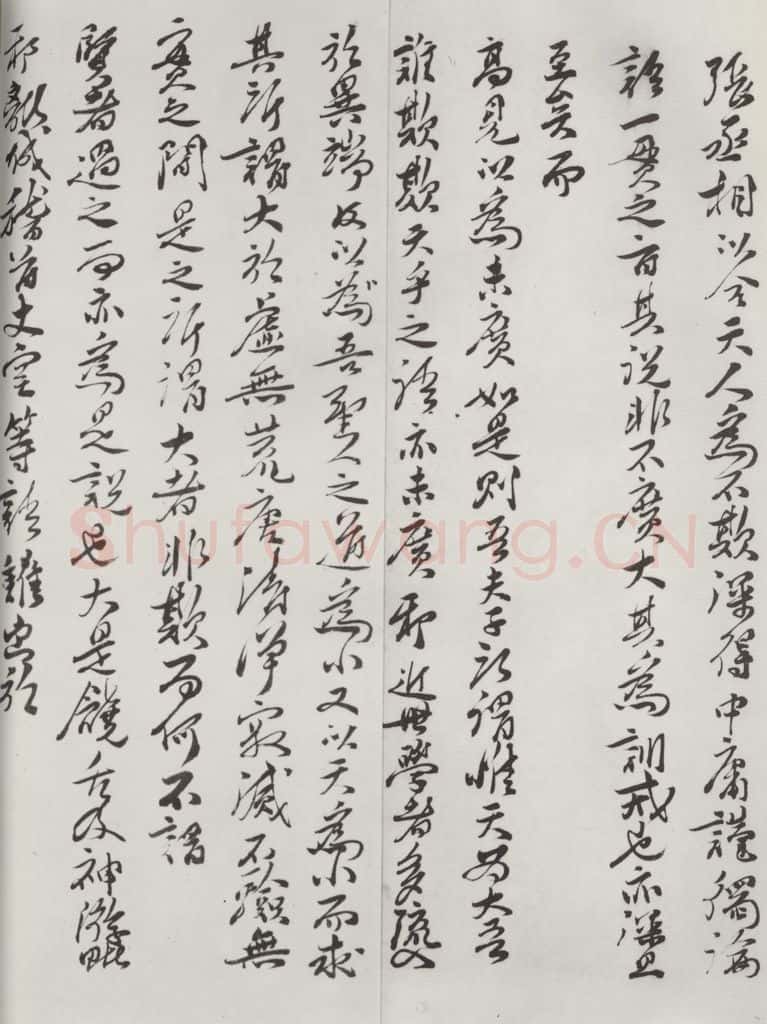 張丞相以合天人為不欺深得中庸謹獨論
語一貫之旨其說非不廣大其為訓戒也亦深且
至矣而
高見以為未廣如是則吾夫子所謂惟天為大吾
誰欺欺天乎之語亦未廣邪近世學者多流入
於異端故以為吾聖人之道為小又以天為小而求
其所謂大於虛無荒唐清淨寂滅不驗無
實之間是之所謂大者非欺而何不謂
賢者過之而亦為是說也大是饒舌及神
邪 稽首丈室等語雖出於
Shufawang.CN